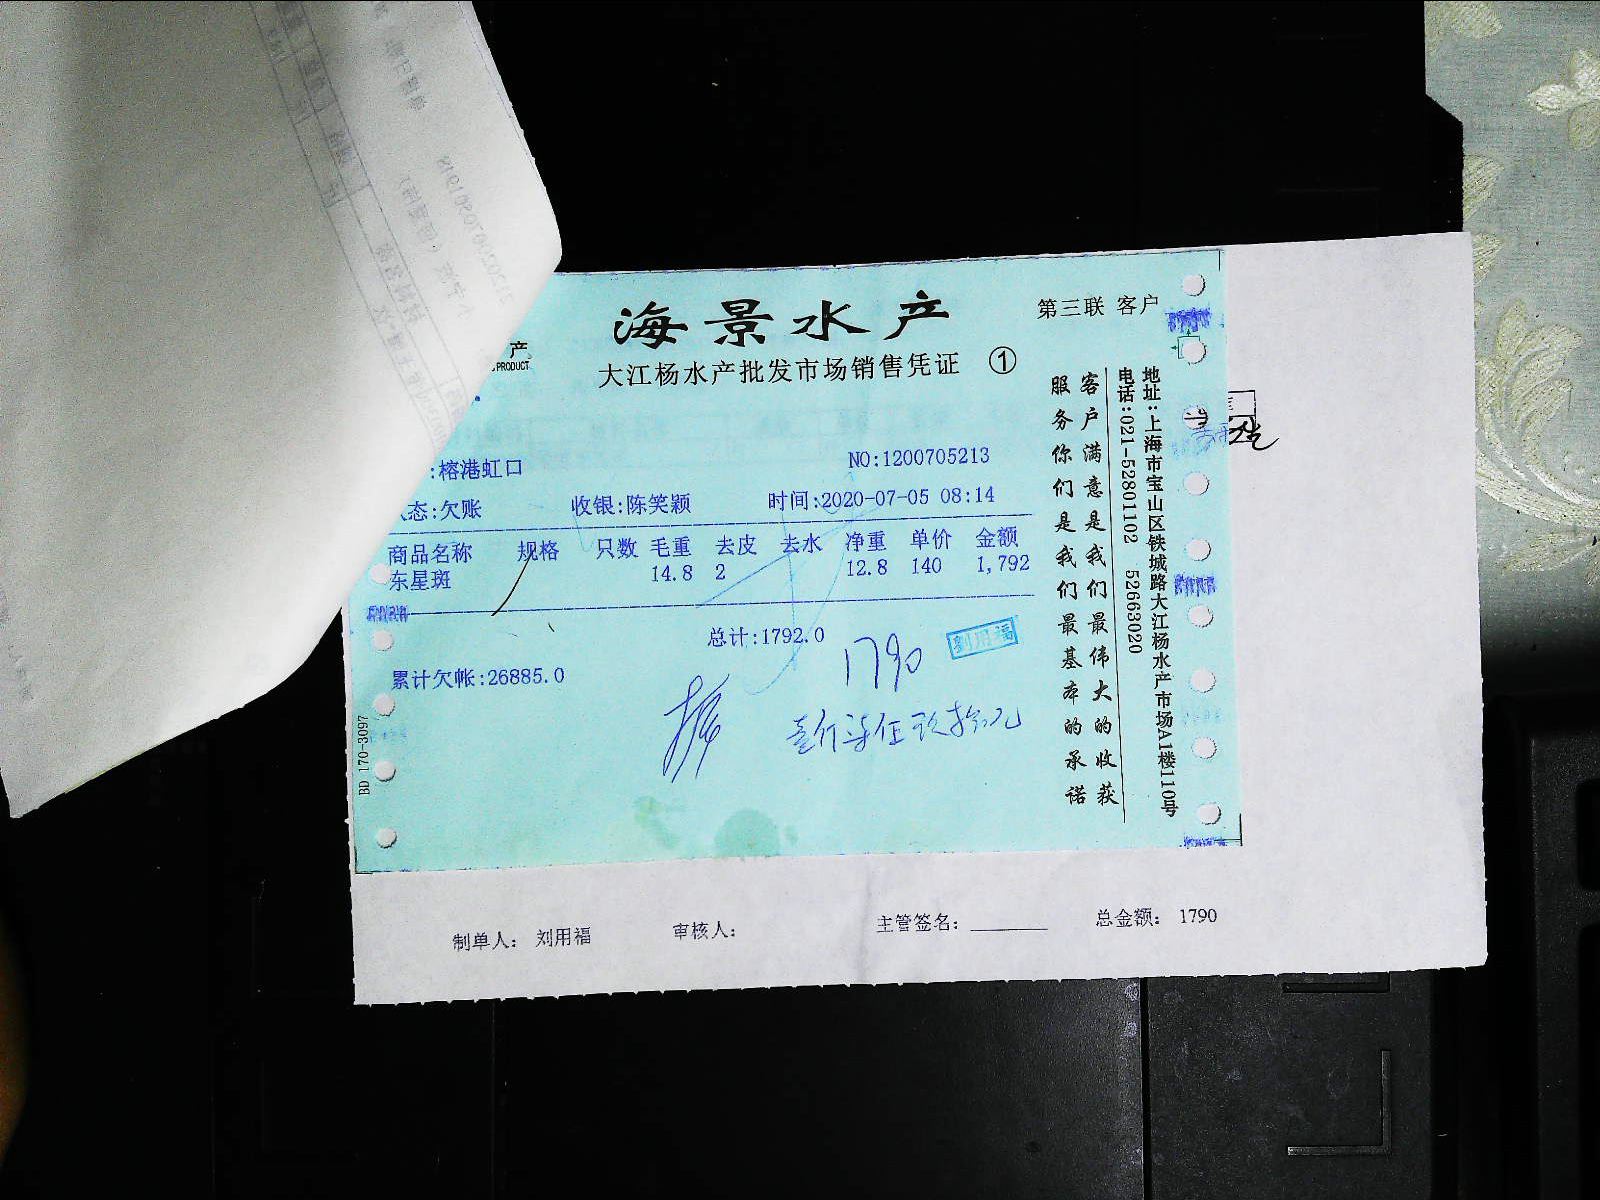 海景水产
第三联 客户
产
PRODUCT
大江杨水产批发市场销售凭证 ①
:榕港虹口
NO:1200705213
态:欠账 收银:陈笑颖 时间:2020-07-05 08:14
商品名称 规格 只数 毛重 去皮 去水 净重 单价 金额
东星斑 14.8 2 12.8 140 1,792
总计:1792.0
1790
刘用福
累计欠帐:26885.0
壹仟柒佰玖拾元
BD 170-3097
客户满意是我们最伟大的收获
服务你们是我们最基本的承诺
地址:上海市宝山区铁城路大江杨水产市场A1楼110号
电话:021-52801102 52663020
制单人: 刘用福 审核人: 主管签名: 总金额: 1790